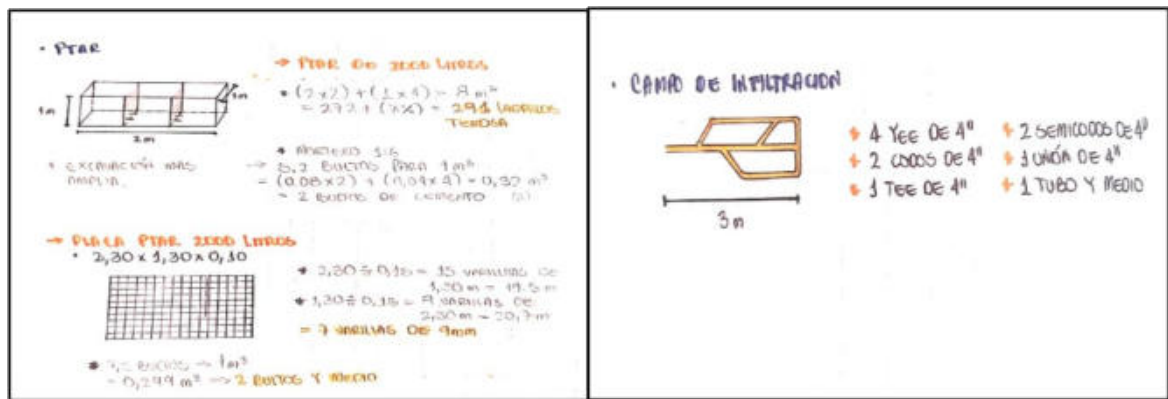 • PTAR
→ PTAR DE 2000 LITROS
1m
1m
2m
• (2x2) + (1x4) = 8 m²
= 272 + (7%) = 291 LADRILLOS
TEMOSA
• EXCAVACIÓN MAS
AMPLIA.
• MORTERO 1:6
→ 5,2 BULTOS PARA 1m³
= (0,08x2) + (0,04x4) = 0,32 m³
= 2 BULTOS DE CEMENTO
→ PLACA PTAR 2000 LITROS
• 2,30 x 1,30 x 0,10
• 2,30 ÷ 0,15 = 15 VARILLAS DE
1,30 m = 19.5 m
• 1,30 ÷ 0,15 = 9 VARILLAS DE
2,30 m = 20,7 m
= 7 VARILLAS DE 9mm
BULTOS → 1m³
= 0,299 m³ → 2 BULTOS Y MEDIO
• CAMPO DE INFILTRACION
3 m
4 YEE DE 4"
2 CODOS DE 4"
1 TEE DE 4"
2 SEMICODOS DE 4"
1 UNIÓN DE 4"
1 TUBO Y MEDIO